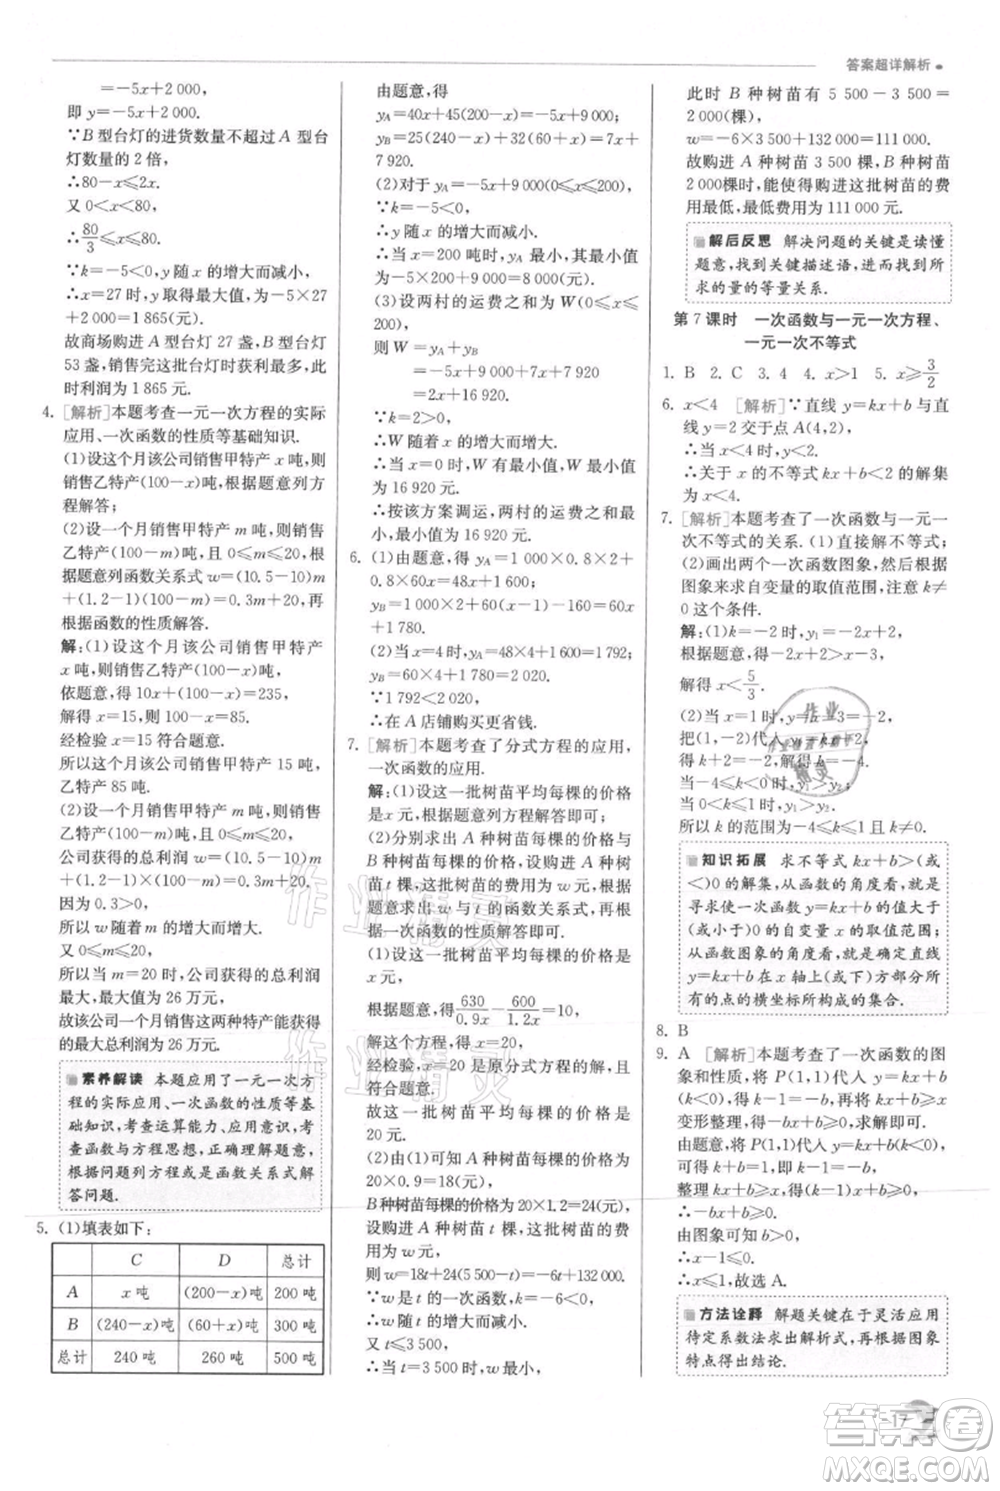 答案超详解析
=-5x+2 000.
即 y=-5x+2 000.
∵B 型台灯的进货数量不超过 A 型台
灯数量的 2 倍,
∴80-x≤2x.
又 0<x<80,
∴80/3≤x<80.
∵k=-5<0,y 随 x 的增大而减小,
∴x=27 时,y 取得最大值,为-5×27
+2 000=1 865(元).
故商场购进 A 型台灯 27 盏,B 型台灯
53 盏,销售完这批台灯时获利最多,此
时利润为 1 865 元.
4. [解析]本题考查一元一次方程的实际
应用、一次函数的性质等基础知识.
(1)设这个月该公司销售甲特产 x 吨,
则销售乙特产(100-x)吨,根据题意列方
程解答;
(2)设一个月销售甲特产 m 吨,则销售
乙特产(100-m)吨,且 0≤m≤20,
根据题意列函数关系式 w=(10.5-10)m
+(1.2-1)(100-m)=0.3m+20,再
根据函数的性质解答.
解:(1)设这个月该公司销售甲特产
x 吨,则销售乙特产(100-x)吨,
依题意,得 10x+(100-x)=235,
解得 x=15,则 100-x=85.
经检验 x=15 符合题意.
所以这个月该公司销售甲特产 15 吨,
乙特产 85 吨.
(2)设一个月销售甲特产 m 吨,则销售
乙特产(100-m)吨,且 0≤m≤20.
公司获得的总利润 w=(10.5-10)m
+(1.2-1)(100-m)=0.3m+20.
因为 0.3>0,
所以 w 随着 m 的增大而增大.
又 0≤m≤20,
所以当 m=20 时,公司获得的总利润
最大,最大值为 26 万元,
故该公司一个月销售这两种特产能获得
的最大总利润为 26 万元.
素养解读 本题应用了一元一次方
程的实际应用、一次函数的性质等基
础知识,考查运算能力、应用意识,考
查函数与方程思想,正确理解题意,
根据问题列方程或是函数关系式解
答问题.
5. (1)填表如下:
C D 总计
A x 吨 (200-x)吨 200 吨
B (240-x)吨 (60+x)吨 300 吨
总计 240 吨 260 吨 500 吨
由题意,得
yA=40x+45(200-x)=-5x+9 000;
yB=25(240-x)+32(60+x)=7x+
7 920.
(2)对于 yA=-5x+9 000(0≤x≤200),
∵k=-5<0,
∴y 随 x 的增大而减小.
∴当 x=200 吨时,yA 最小,其最小值
为-5×200+9 000=8 000(元).
(3)设两村的运费之和为 W(0≤x≤
200),
则 W=yA+yB
=-5x+9 000+7x+7 920
=2x+16 920.
∵k=2>0,
∴W 随着 x 的增大而增大.
∴当 x=0 时,W 有最小值,W 最小
值为 16 920(元).
∴按该方案调运,两村的运费之和最
小,最小值为 16 920 元.
6. (1)由题意,得 yA=1 000×0.8×2+
0.8×60x=48x+1 600;
yB=1 000×2+60(x-1)-160=60x+
1 780.
(2)当 x=4 时,yA=48×4+1 600=1 792;
yB=60×4+1 780=2 020.
∵1 792<2 020,
∴在 A 店铺购买更省钱.
7. [解析]本题考查了分式方程的应用,
一次函数的应用.
解:(1)设这一批树苗平均每棵的价格
是 x 元,根据题意列方程解答即可;
(2)分别求出 A 种树苗每棵的价格与 B
种树苗每棵的价格,设购进 A 种树
苗 t 棵,这批树苗的费用为 w 元,根据
题意求出 w 与 t 的函数关系式,再根据
一次函数的性质解答即可.
(1)设这一批树苗平均每棵的价格是
x 元,
根据题意,得 630/0.9x-600/1.2x=10,
解这个方程,得 x=20,
经检验,x=20 是原分式方程的解,且
符合题意.
故这一批树苗平均每棵的价格是
20 元.
(2)由(1)可知 A 种树苗每棵的价格为
20×0.9=18(元),
B 种树苗每棵的价格为 20×1.2=24(元),
设购进 A 种树苗 t 棵,这批树苗的费
用为 w 元,
则 w=18t+24(5 500-t)=-6t+132 000.
∵w 是 t 的一次函数,k=-6<0,
∴w 随着 t 的增大而减小.
又 t≤3 500,
∴当 t=3 500 时,w 最小,
此时 B 种树苗有 5 500-3 500=
2 000(棵),
w=-6×3 500+132 000=111 000.
故购进 A 种树苗 3 500 棵,B 种树苗
2 000棵时,能使得购进这批树苗的费
用最低,最低费用为 111 000 元.
解后反思 解决问题的关键是读懂
题意,找到关键描述语,进而找到所
求的量的等量关系.
第 7 课时 一次函数与一元一次方程、
一元一次不等式
1. B 2. C 3. 4 4. x>1 5. x≥3/2
6. x<4 [解析]∵直线 y=kx+b 与直
线 y=2 交于点 A(4,2),
∴当 x<4 时,y<2.
∴关于 x 的不等式 kx+b<2 的解集
为 x<4.
7. [解析]本题考查了一次函数与一元一
次不等式的关系. (1)直接解不等式;
(2)画出两个一次函数图象,然后根据
图象来求自变量的取值范围时,满足
0 这个条件.
解:(1)k=-2 时,y₁=-2x+2.
根据题意,得-2x+2>x-3,
解得 x<5/3.
(2)当 x=1 时,y=x-3=-2,
把(1,-2)代入 y₁=kx+2,得 k=-4.
当-4≤k<0 时,y₁>y₂;
当 0<k≤1 时,y₁>y₂.
所以 k 的范围为-4≤k≤1,且 k≠0.
知识拓展 求不等式 kx+b>(或
<)0 的解集,从函数的角度看,就是
寻求使一次函数 y=kx+b 的值大于
(或小于)0 的自变量 x 的取值范围;
从函数图象的角度看,就是确定直线
y=kx+b 在 x 轴上(或下)方部分所有
的点的横坐标所构成的集合.
8. B
9. A [解析]本题考查了一次函数的图
象和性质.将 P(1,1)代入 y=kx+b
(k<0),得 k+b=1,即 k-1=-b,
变形整理,得-bx+b≥0.
由题意,将 P(1,1)代入 y=kx+b
(k<0),得 k+b=1,即 k-1=-b.
整理 kx+b≥x,得(k-1)x+b≥0,
∴-bx+b≥0.
由图象可知 b>0,
∴x-1≤0.
∴x≤1,故选 A.
方法诠释 解题关键在于灵活应用
待定系数法求出解析式,再根据图象
特点得出结论.
作业精灵
作业精灵
17
答案圈
MXQE.COM